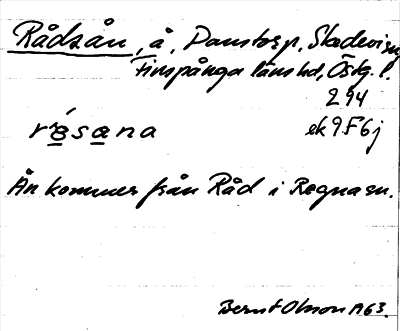 Rådsån, å, Danstorp, Skedevi sn,
Finspånga läns hd, Östg. l.
294
ek 9F6j
résana
Ån kommer från Råd i Regna sn.
Bernt Olson 1963.